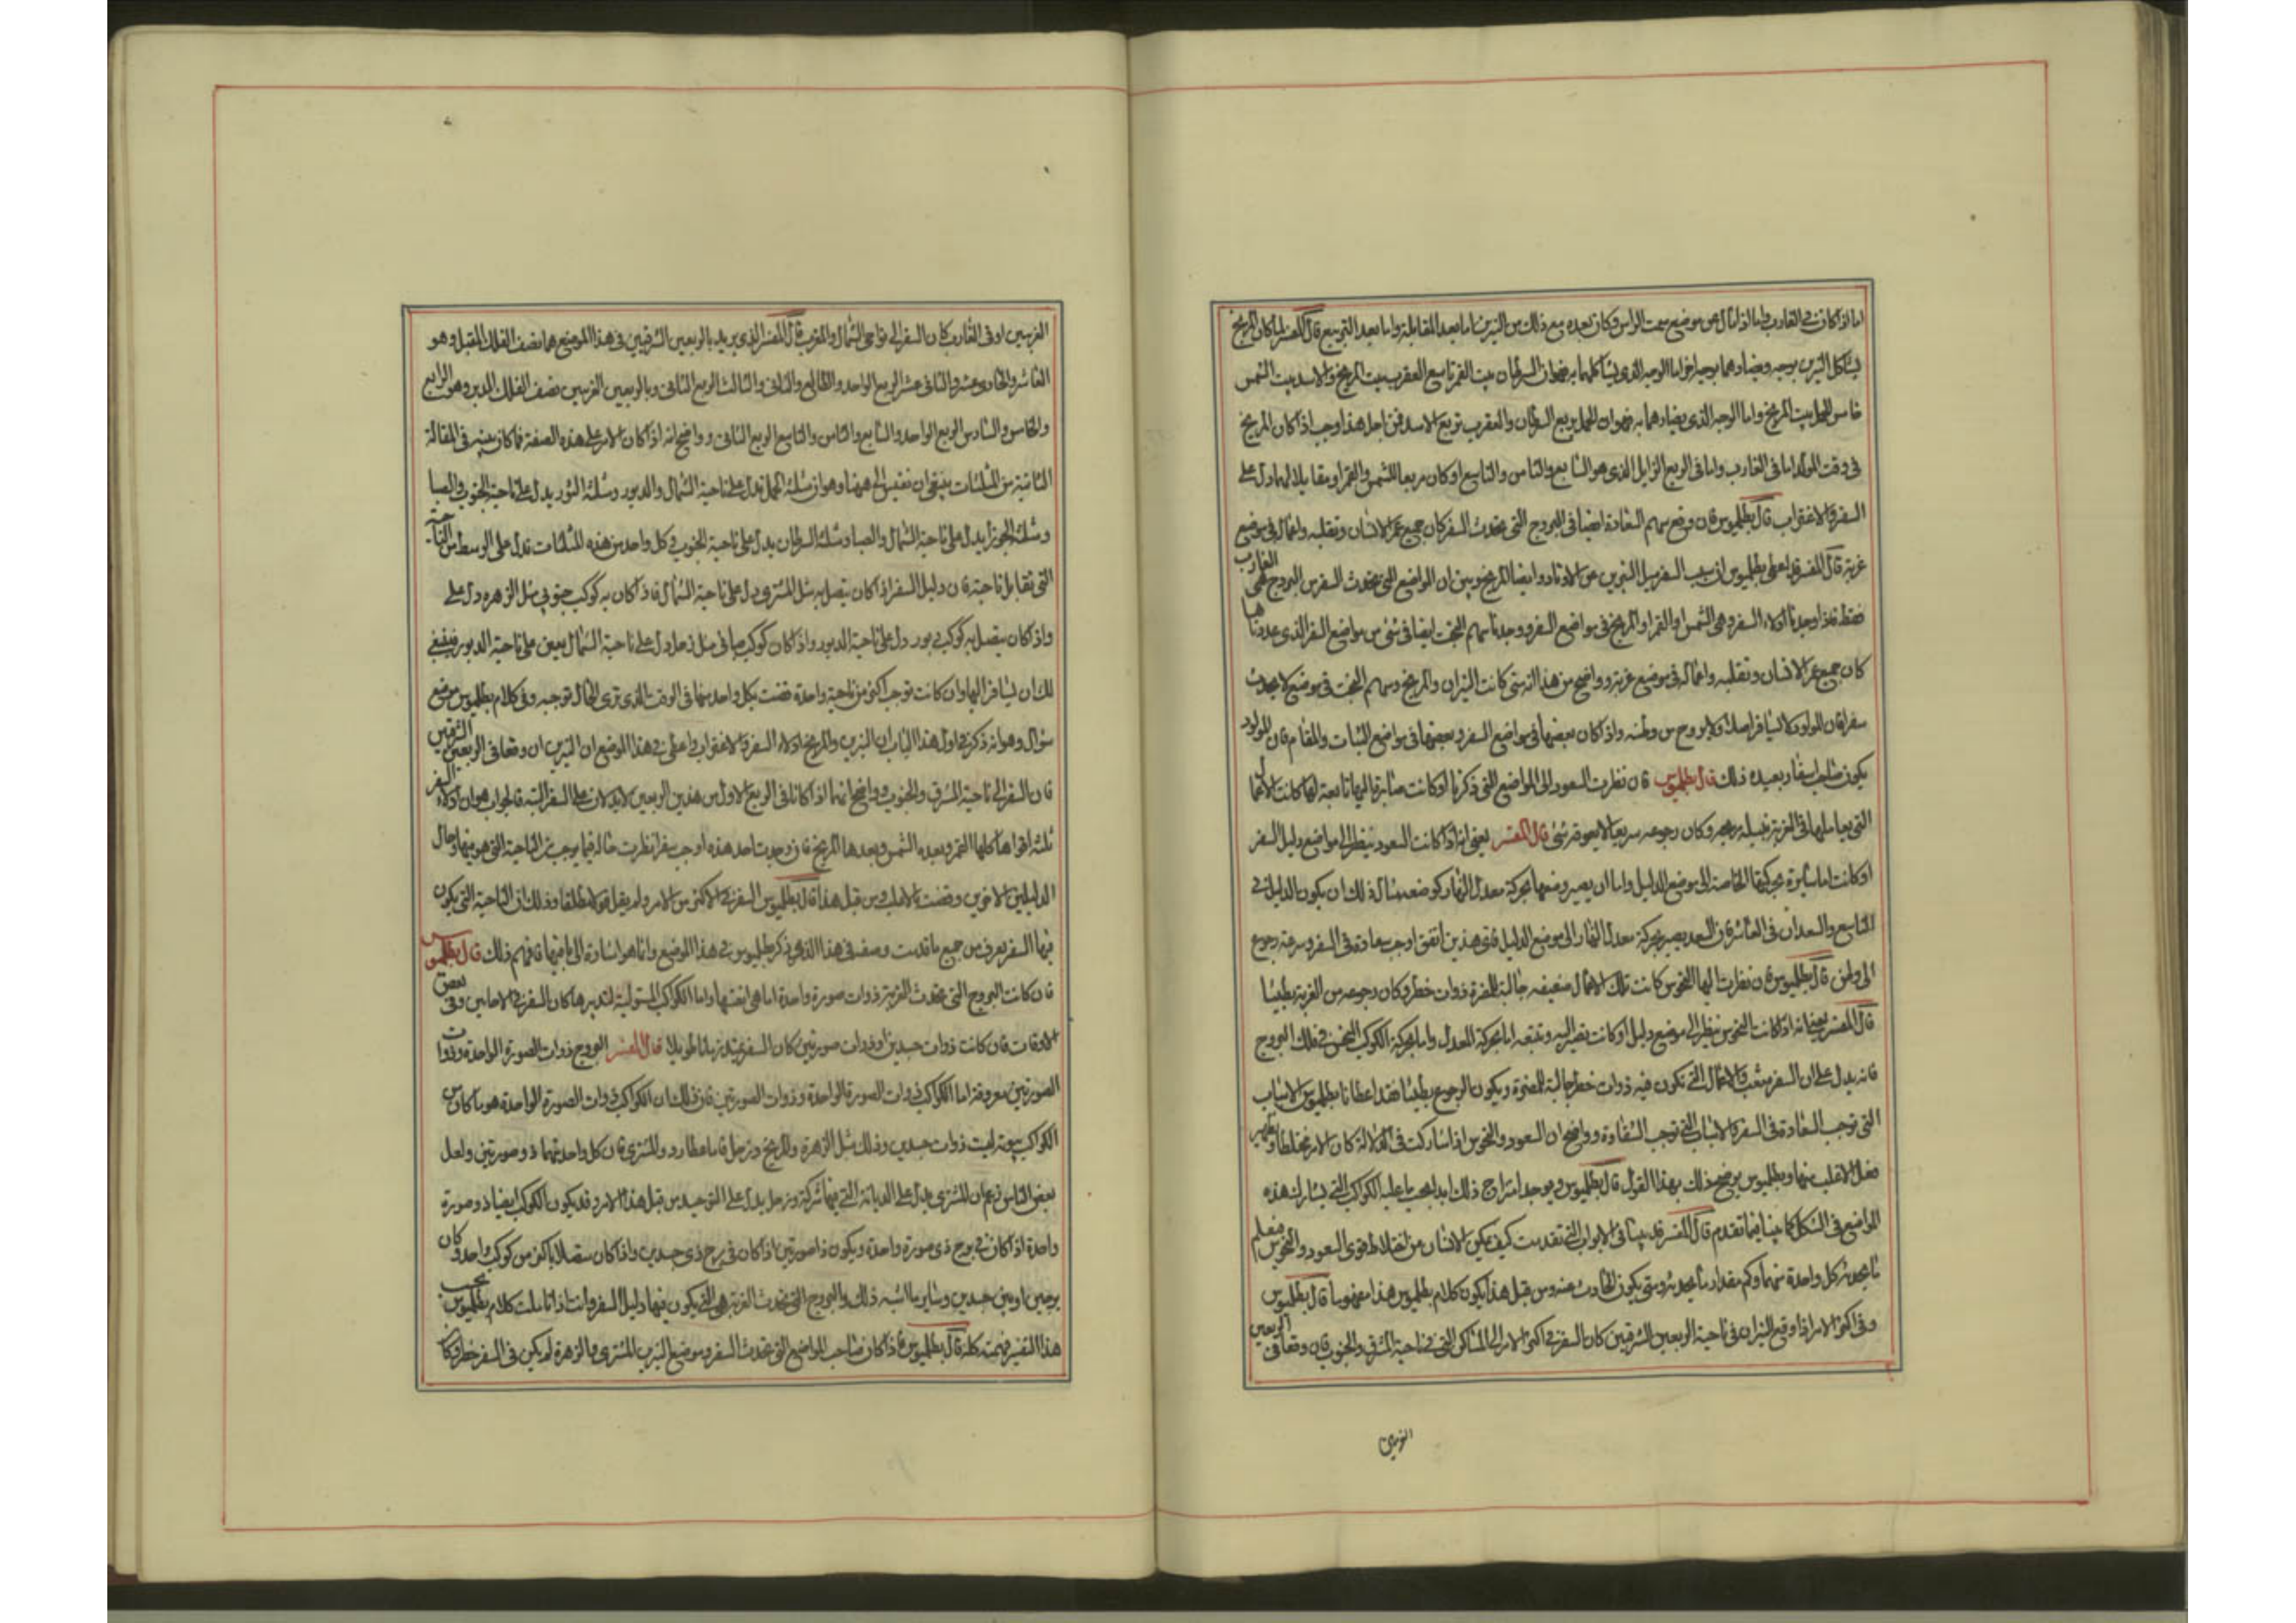 اما اذا كانت فى الغارب واما اذا مال عن موضع سمت الراس وكان بعده مع ذلك من النيرين اما بعد المقابلة واما بعد التربيع قال المفسر لما كان المريخ
يشاكل النيرين بوجه ويضادهما بوجه اخر اما الوجه الذى يشاكلهما به فهو ان السرطان بيت القمر تاسع العقرب بيت المريخ والاسد بيت الشمس
خامس الحمل بيت المريخ واما الوجه الذى يضادهما به فهو ان الحمل يربع السرطان والعقرب تربيع الاسد فمن اجل هذا وجب اذا كان المريخ
فى وقت المولد اما فى الغارب واما فى الربع الزايل الذى هو السابع والثامن والتاسع او كان مربعا للشمس والقمر او مقابلا لهما دل على
السفر والاغتراب قال بطلميوس فان وقع سهم السعادة ايضا فى البروج التى تحدث السفر كان جميع عمر الانسان وتقلبه واعماله فى موضع
غربة قال المفسر قد اعطى بطلميوس ان سبب السفر ميل النيرين عن الاوتاد وايضا المريخ وبين ان المواضع التى تحدث السفر من البروج هى الغارب
فقط فاذا وجدنا ادلاء السفر وهى الشمس او القمر او المريخ فى مواضع السفر ووجدنا سهم البخت ايضا فى شئ من مواضع السفر الذى عددناها
كان جميع عمر الانسان وتقلبه واعماله فى موضع غربة وواضح من هذا انه متى كانت النيران والمريخ وسهم البخت فى موضع لا يحدث
سفرا فان المولود لا يسافر اصلا ولا يروح من وطنه واذا كان بعضها فى مواضع السفر وبعضها فى مواضع الثبات والمقام فان المولود
يكون صاحب اسفار بعيده ذلك قال بطلميوس فان نظرت السعود الى المواضع التى ذكرنا او كانت صايرة اليها تابعة لها كانت الاعمال
التى يعاملها فى الغربة نبيلة مربحه وكان رجوعه سريعا لا يعوقه شئ قال المفسر يعنى انه اذا كانت السعود ينظر الى مواضع دليل السفر
او كانت اما سايرة بحركتها الخاصة الى موضع الدليل واما ان يصير وضعها بحركة معدل النهار كوضعه مثال ذلك ان يكون الدليل فى
التاسع والسعدان فى العاشر فان السعد يصير بحركة معدل النهار الى موضع الدليل فاى هذين اتفق اوجب سعادة فى السفر وسرعة رجوع
الى وطن قال بطلميوس فان نظرت اليها النحوس كانت تلك الاعمال ضعيفه جالبة للمضرة ذوات خطر وكان رجوعه من الغربة بطيئا
قال المفسر يعنى انه اذا كانت النحوس ينظر الى موضع دليل او كانت تصير اليه وتتبعه اما بحركة المعدل واما بحركة الكوكب النحس فى فلك البروج
فانه يدل على ان السفر متعب والاعمال التى تكون فيه ذوات خطر جالبة للمضرة ويكون الرجوع بطيئا فقد اعطانا بطلميوس الاسباب
التى توجب السعادة فى السفر والاسباب التى توجب الشقاوة وواضح ان السعود والنحوس اذا شاركت فى الدلالة كان الامر مختلطا ويصير
فعل الاغلب منهما وبطلميوس يوضح ذلك بهذا القول قال بطلميوس ويوجد امتزاج ذلك ابدا بحسب ما عليه الكواكب التى يشارك هذه
المواضع فى الشكل كما بينا فيما تقدم قال المفسر قد بينا فى الابواب التى تقدمت كيف يمكن الانسان من اختلاط قوى السعود والنحوس ان يعلم
ما يحدثه كل واحدة منهما وكم مقدار ما يحدثه ومتى يكون الحادث عنه ومن قبل هذا يكون كلام بطلميوس هذا مفهوما قال بطلميوس
وفى اكثر الامر اذا وقع النيران فى ناحية الربعين الشرقيين كان السفر فى اكثر الامر الى المساكن التى فى ناحية المشرق والجنوب فان وقعا فى الربعين
الغربيين
الغربيين او فى الغارب كان السفر الى نواحى الشمال والمغرب قال المفسر الذى يريد بالربعين الشرقيين فى هذا الموضع هما نصف الفلك المقبل وهو
العاشر والحادى عشر والثانى عشر الربع الواحد والطالع والثانى والثالث الربع الثانى وبالربعين الغربيين نصف الفلك المدبر وهو الرابع
والخامس والسادس الربع الواحد والسابع والثامن والتاسع الربع الثانى وواضح انه اذا كان الامر على هذه الصفة فما كان بينه فى المقالة
الثانية من المثلثات ينبغى ان نضيف الى ههنا وهو ان مثلثة الحمل تدل على ناحية الشمال والدبور ومثلثة الثور يدل على ناحية الجنوب والصبا
ومثلثة الجوزا يدل على ناحية الشمال والصبا ومثلثة السرطان يدل على ناحية الجنوب فى كل واحد من هذه المثلثات تدل على الوسط من الناحية
التى تقابل ناحية فان دليل السفر اذا كان يتصل به مثل المشترى دل على ناحية الشمال فاذا كان به كوكب جنوبى مثل الزهره دل على
واذا كان يتصل به كوكب دبور دل على ناحية الدبور واذا كان كوكب صبا فى مثل زحل دل على ناحية الشمال يعين على ناحية الدبور فينبغى
لك ان يسافر اليها وان كانت توجب اكثر من ناحية واحدة قضت بكل واحد منها فى الوقت الذى ترى الحال توجبه وفى كلام بطلميوس موضع
سؤال وهو انه ذكر فى اول هذا الباب ان النيرين والمريخ ادلاء السفر والاغتراب واعطى فى هذا الموضع ان النيرين ان وقعا فى الربعين الشرقيين
فان السفر الى ناحية المشرق والجنوب وواضح انهما اذا كانا فى الربع الاول من هذين الربعين لا يدلان على السفر البتة فالجواب هو ان ادلاء السفر
ثلثة اقواها كلها القمر وبعده الشمس وبعدها المريخ فان وجدت احد هذه اوجب سفرا نظرت حاله فيما يوجب من الناحية التى هو فيها وحال
الدليلين الاخرين وقضت بالاغلب ومن قبل هذا قال بطلميوس السفر فى الاكثر من الامر ولم يقل قولا مطلقا وذلك ان الناحية التى يكون
فيها السفر يعرف من جميع ما قدمت وصفه فى هذا الذى ذكر بطلميوس فى هذا الموضع وانما هو اشارة الى ما فيها فافهم ذلك قال بطلميوس
فان كانت البروج التى تحدث الغربة ذوات صورة واحدة اما هى انفسها واما الكواكب المستولية لتدبيرها كان السفر فى الاحايين وفى بعض
الاوقات فان كانت ذوات جسدين او ذوات صورتين كان السفر متصلا زمانا طويلا قال المفسر البروج ذوات الصورة الواحدة وذوات
الصورتين معروفة اما الكواكب ذوات الصورة الواحدة وذوات الصورتين فان ذلك ان الكواكب ذوات الصورة الواحدة هو ما كان من
الكواكب بيوته ليست ذوات جسدين وذلك مثل الزهرة والمريخ وزحل فاما عطارد والمشترى فان كل واحد منهما ذو صورتين ولعل
بعض الناس زعم ان المشترى يدل على الديانة التى فيها شركة وزحل يدل على التوحيد من قبل هذا الامر وقد يكون الكوكب ايضا ذو صورة
واحدة اذا كان فى برج ذى صورة واحدة ويكون ذا صورتين اذا كان فى برج ذى جسدين واذا كان متصلا باكثر من كوكب واحد وكان
برجين او بين جسدين وسايرها اشبه ذلك والبروج التى تحدث الغربة هى التى يكون فيها دليل السفر وانت اذا تاملت كلام بطلميوس بحسب
هذا التفسير فهمته كله قال بطلميوس فاذا كان صاحب المواضع التى تحدث السفر وموضع النيرين المشترى والزهرة لم يكن فى السفر خطر وكا